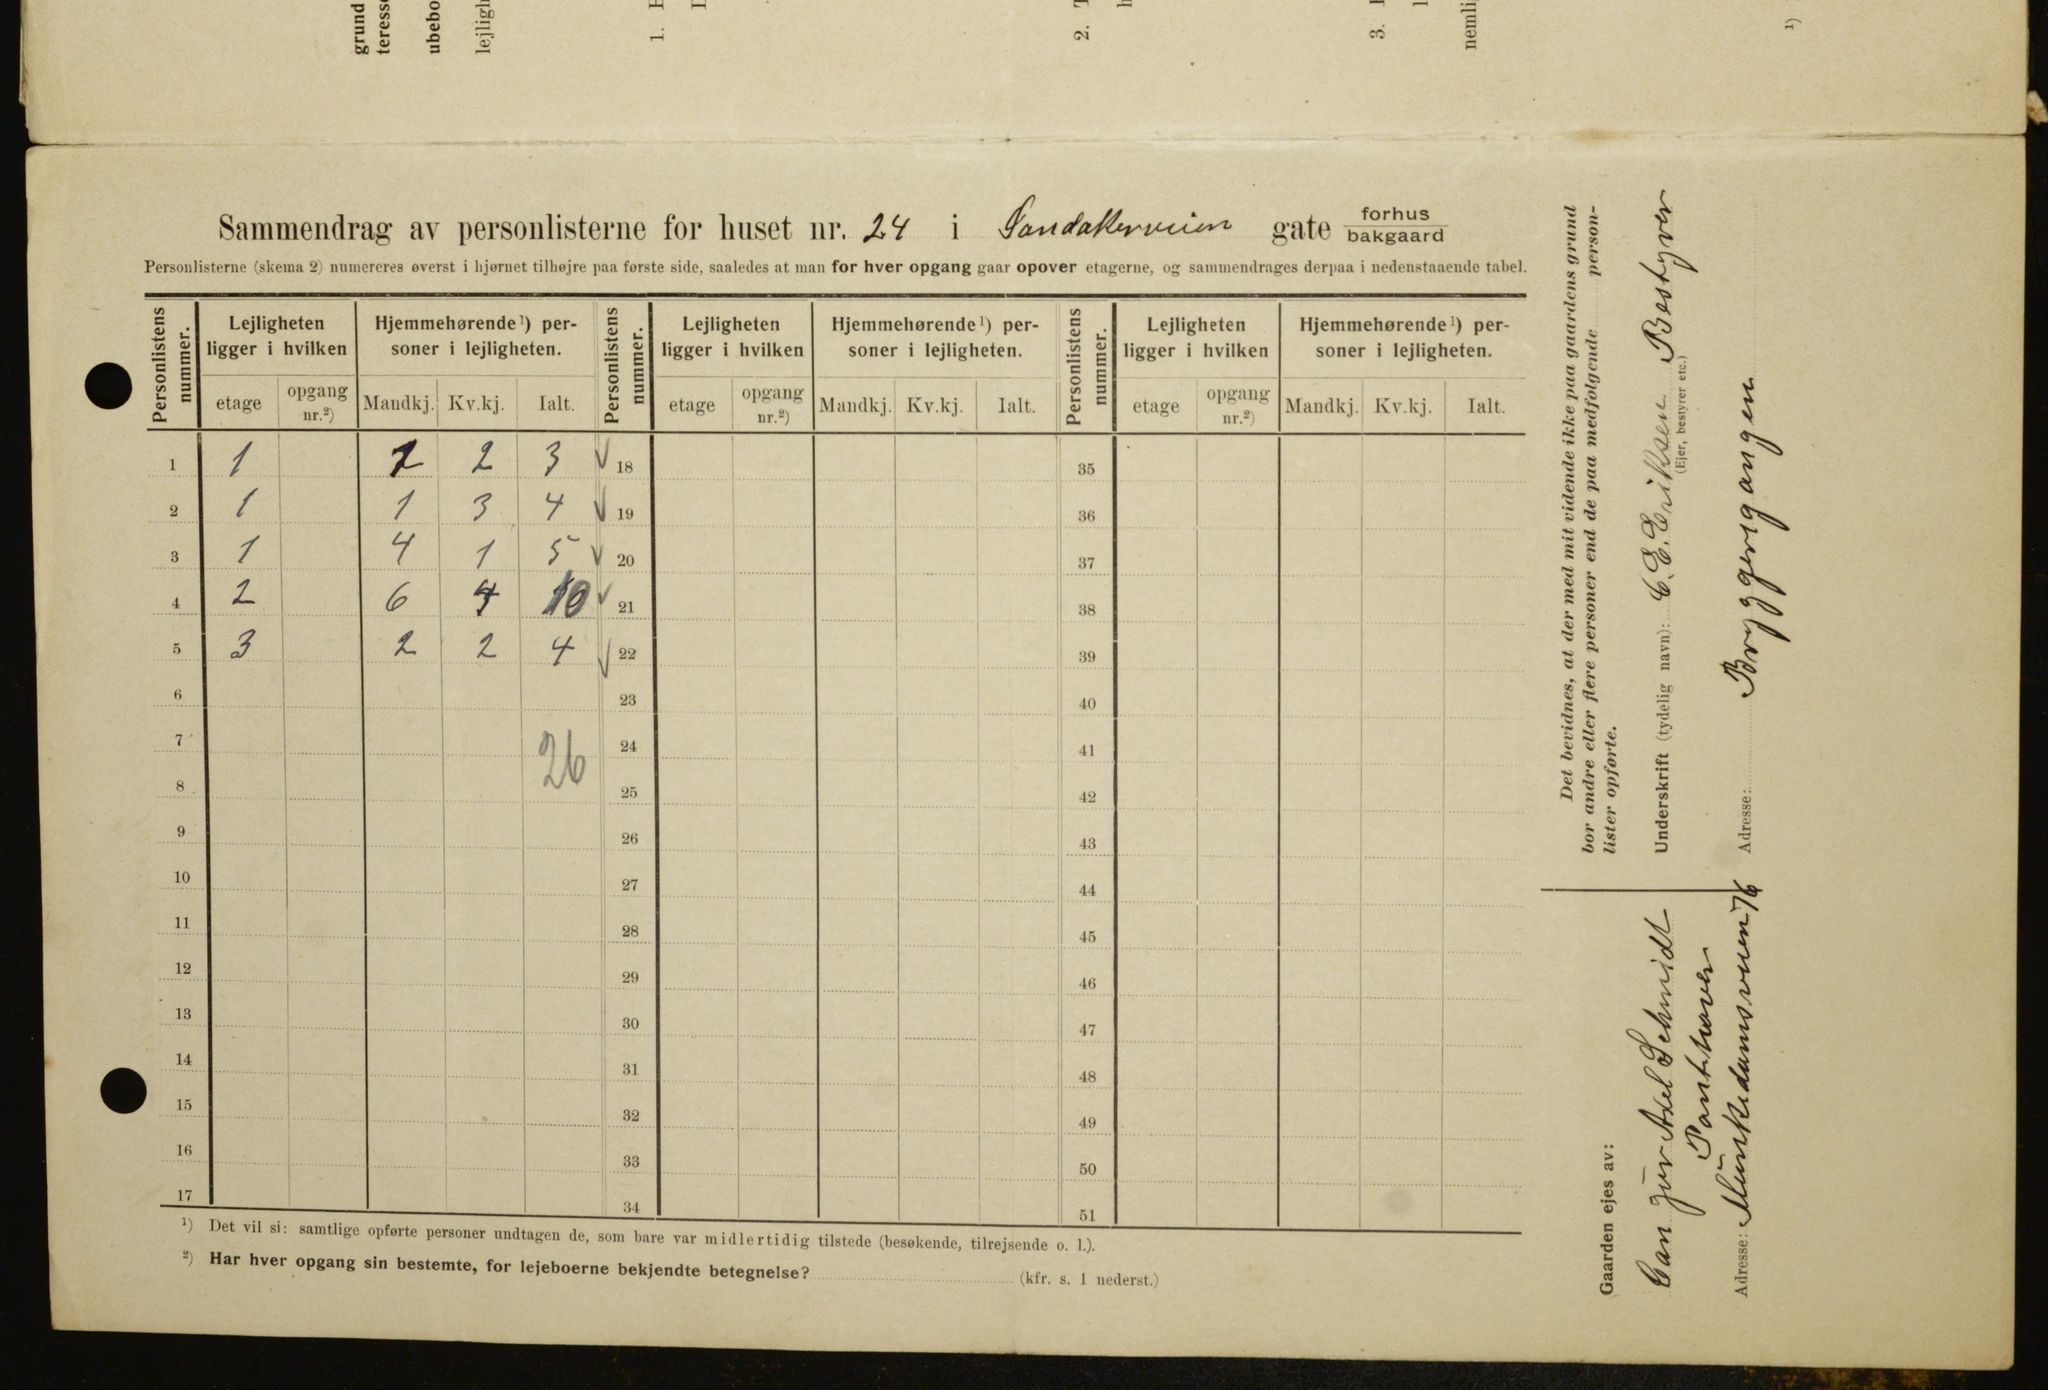 grund
teresse
ubebo
lejligh
1.
2.
3.
nemlig
¹)
Sammendrag av personlisterne for huset nr. 24 i Sandakerveien gate forhus
bakgaard
Personlisterne (skema 2) numereres øverst i hjørnet tilhøjre paa første side, saaledes at man for hver opgang gaar opover etagerne, og sammendrages derpaa i nedenstaaende tabel.
Personlistens nummer. Lejligheten ligger i hvilken Hjemmehørende¹) personer i lejligheten. Personlistens nummer. Lejligheten ligger i hvilken Hjemmehørende¹) personer i lejligheten. Personlistens nummer. Lejligheten ligger i hvilken Hjemmehørende¹) personer i lejligheten.
etage opgang nr.²) Mandkj. Kv.kj. Ialt. etage opgang nr.²) Mandkj. Kv.kj. Ialt. etage opgang nr.²) Mandkj. Kv.kj. Ialt.
1 1 1 2 3 18 35
2 1 1 3 4 19 36
3 1 4 1 5 20 37
4 2 6 4 10 21 38
5 3 2 2 4 22 39
6 23 40
7 26 24 41
8 25 42
9 26 43
10 27 44
11 28 45
12 29 46
13 30 47
14 31 48
15 32 49
16 33 50
17 34 51
¹) Det vil si: samtlige opførte personer undtagen de, som bare var midlertidig tilstede (besøkende, tilrejsende o. l.).
²) Har hver opgang sin bestemte, for lejeboerne bekjendte betegnelse? (kfr. s. 1 nederst.)
Det bevidnes, at der med mit vidende ikke paa gaardens grund
bor andre eller flere personer end de paa medfølgende person-
lister opførte.
Underskrift (tydelig navn): C. E. Eriksen Bestyrer
(Ejer, bestyrer etc.)
Adresse: Bryggerigangen
Gaarden ejes av:
Axel Schmidt
Adresse: Munkedamsveien 76